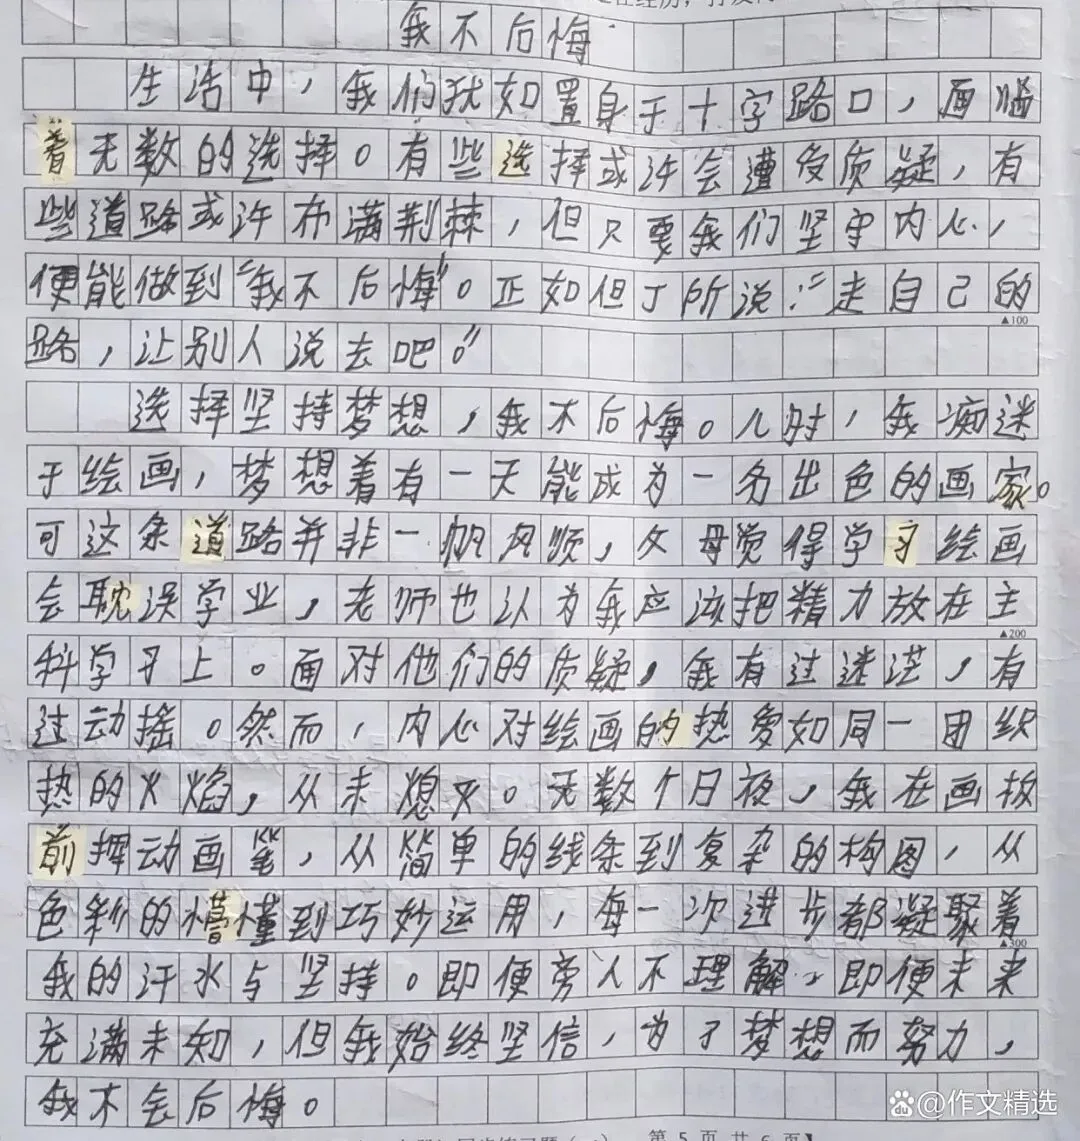 我不后悔
生活中，我们犹如置身于十字路口，面临
着无数的选择。有些选择或许会遭受质疑，有
些道路或许布满荆棘，但只要我们坚守内心，
便能做到“我不后悔”。正如但丁所说：“走自己的
▲100
路，让别人说去吧。”
选择坚持梦想，我不后悔。儿时，我痴迷
于绘画，梦想着有一天能成为一名出色的画家。
可这条道路并非一帆风顺，父母觉得学习绘画
会耽误学业，老师也认为我应该把精力放在主
▲200
科学习上。面对他们的质疑，我有过迷茫，有
过动摇。然而，内心对绘画的热爱如同一团炽
热的火焰，从未熄灭。无数个日夜，我在画板
前挥动画笔，从简单的线条到复杂的构图，从
色彩的懵懂到巧妙运用，每一次进步都凝聚着
▲300
我的汗水与坚持。即便旁人不理解，即便未来
充满未知，但我始终坚信，为了梦想而努力，
我不会后悔。
@作文精选
第 5 页 共 6 页】